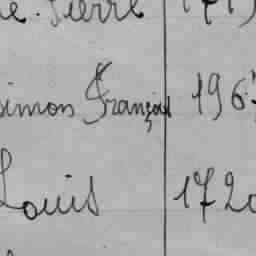 e. Pierre 171
Simon François 196
Louis 172